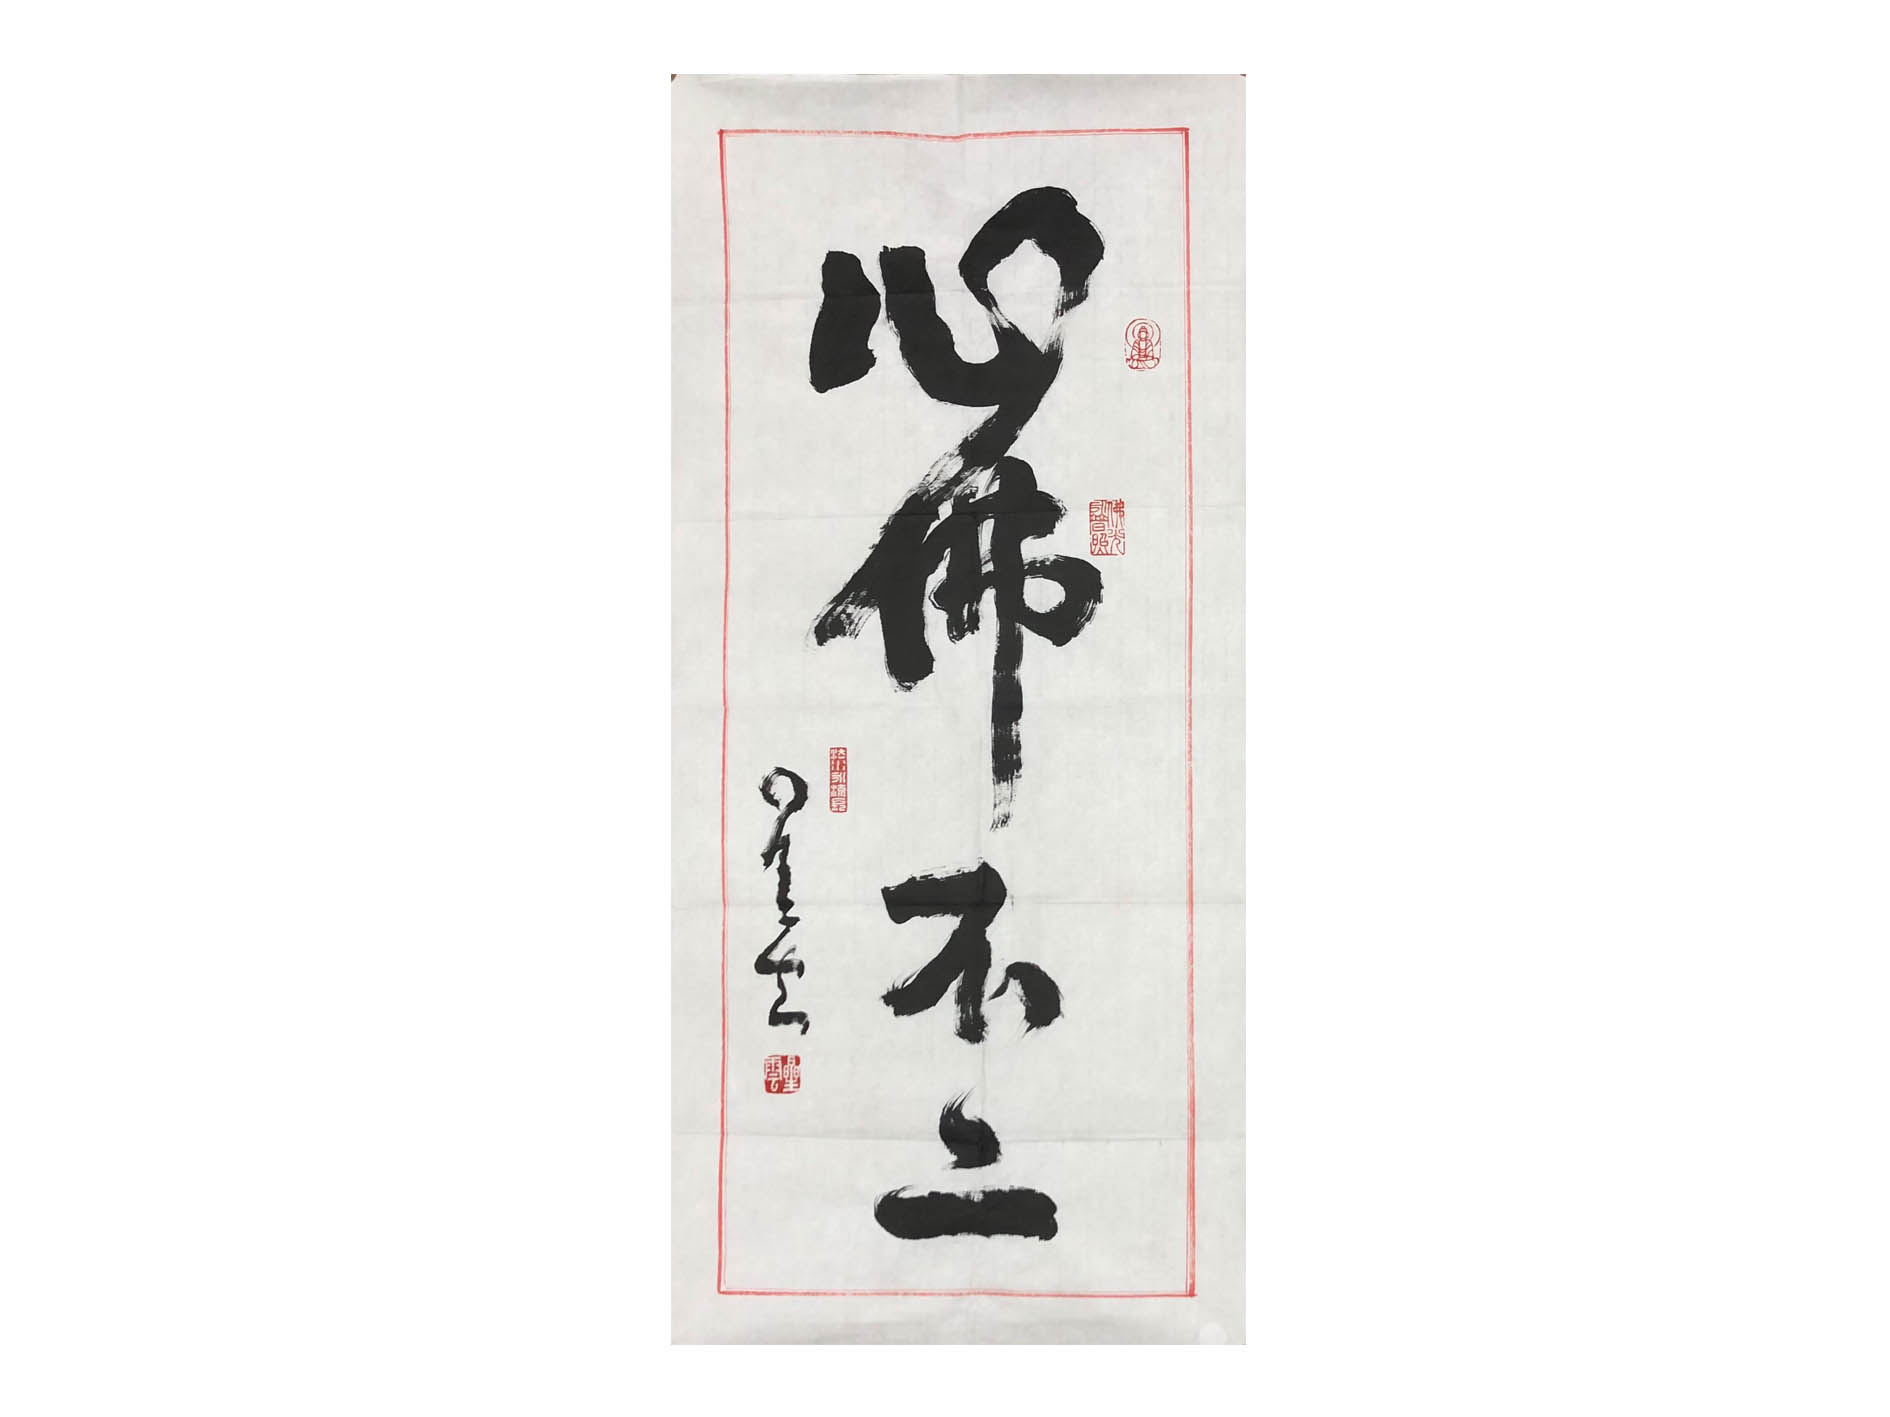 心佛不二
佛光普照
星雲
星雲